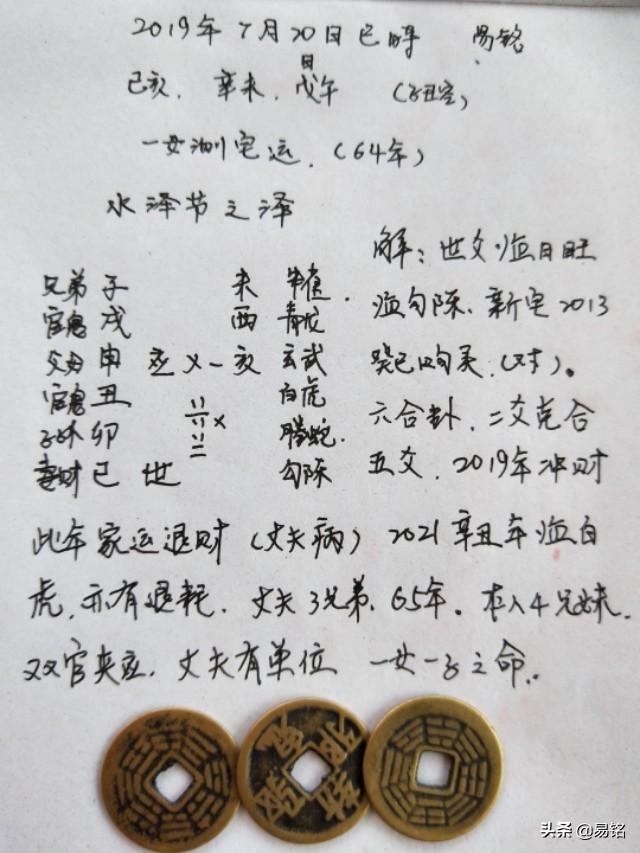 2019年7月20日巳时 易铭
日
己亥、辛未、戊午 (子丑空)
一女测宅运.(64年)
水泽节之泽
解:世爻临日旺
临勾陈、新宅2013
癸巳购买.(对)。
六合卦、二爻克合
五爻、2019年冲财
兄弟 子 未 朱雀.
官鬼 戌 酉 青龙
父母 申 应 乂 一 亥 玄武
官鬼 丑 白虎
子孙 卯 腾蛇.
妻财 巳 世 勾陈
此年家运退财(丈夫病) 2021辛丑年临白
虎、亦有退耗. 丈夫3兄弟、65年。本人4兄妹.
双官夹应. 丈夫有单位 一女一子之命..
头条 @易铭